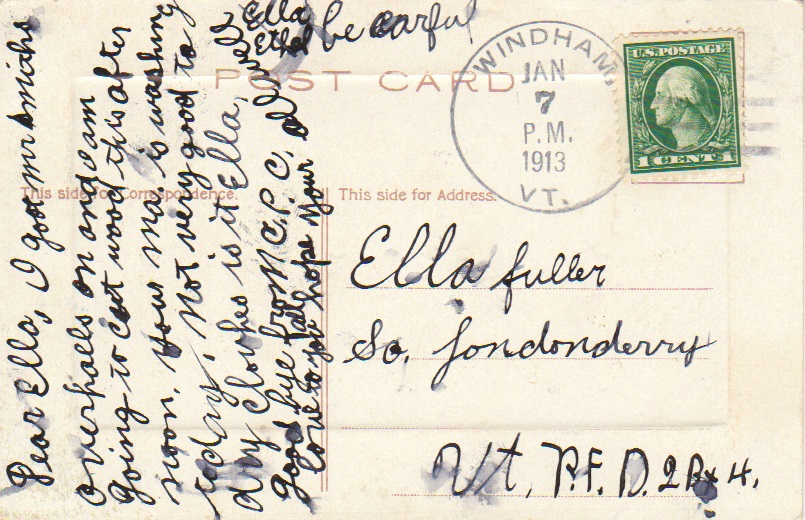 POST CARD
This side for Correspondence.
This side for Address.
WINDHAM,
JAN
7
P.M.
1913
VT.
U.S. POSTAGE
1 CENT 1
Ella fuller
So. Londonderry
Vt, R.F.D. 2 Bx 4.
Dear Ella, I got mr smiths
overhalls on and am
going to cut wood this after
noon. your ma is washing
today, not very good to
dry Clouhes is it Ella,
good bye from C.P.C.
love to you hope your all well
Ella
Ethel be carful